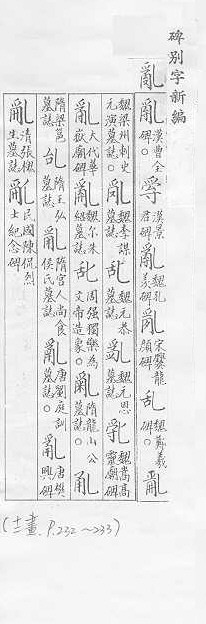 碑別字新編
亂
亂漢曹全碑。𤔔漢景君碑。亂魏孔羨碑。亂宋爨龍顏碑。乱魏鄭羲碑。
魏梁州刺史元演墓誌。亂魏李謀墓誌。乱魏元恭墓誌。亂魏元思墓誌。亂魏嵩高靈廟碑。
亂大代華嶽廟碑。亂魏尔朱紹墓誌。乱周强獨樂為文帝造象。亂隋龍山公墓誌。
隋梁邕墓誌。隋王弘墓誌。亂隋宮人尚食侯氏墓誌。亂唐劉庭訓墓誌。亂唐樊興碑。
亂清張㮣生墓誌。亂民國陳侃烈士紀念碑。
(十三畫.P.232~233)